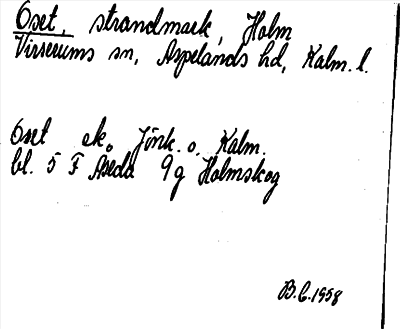 Oset, strandmark, Holm
Virserums sn, Aspelands hd, Kalm. l.
Oset ek. Jönk. o. Kalm.
bl. 5 F Åseda 9g Holmskog
B.C. 1958